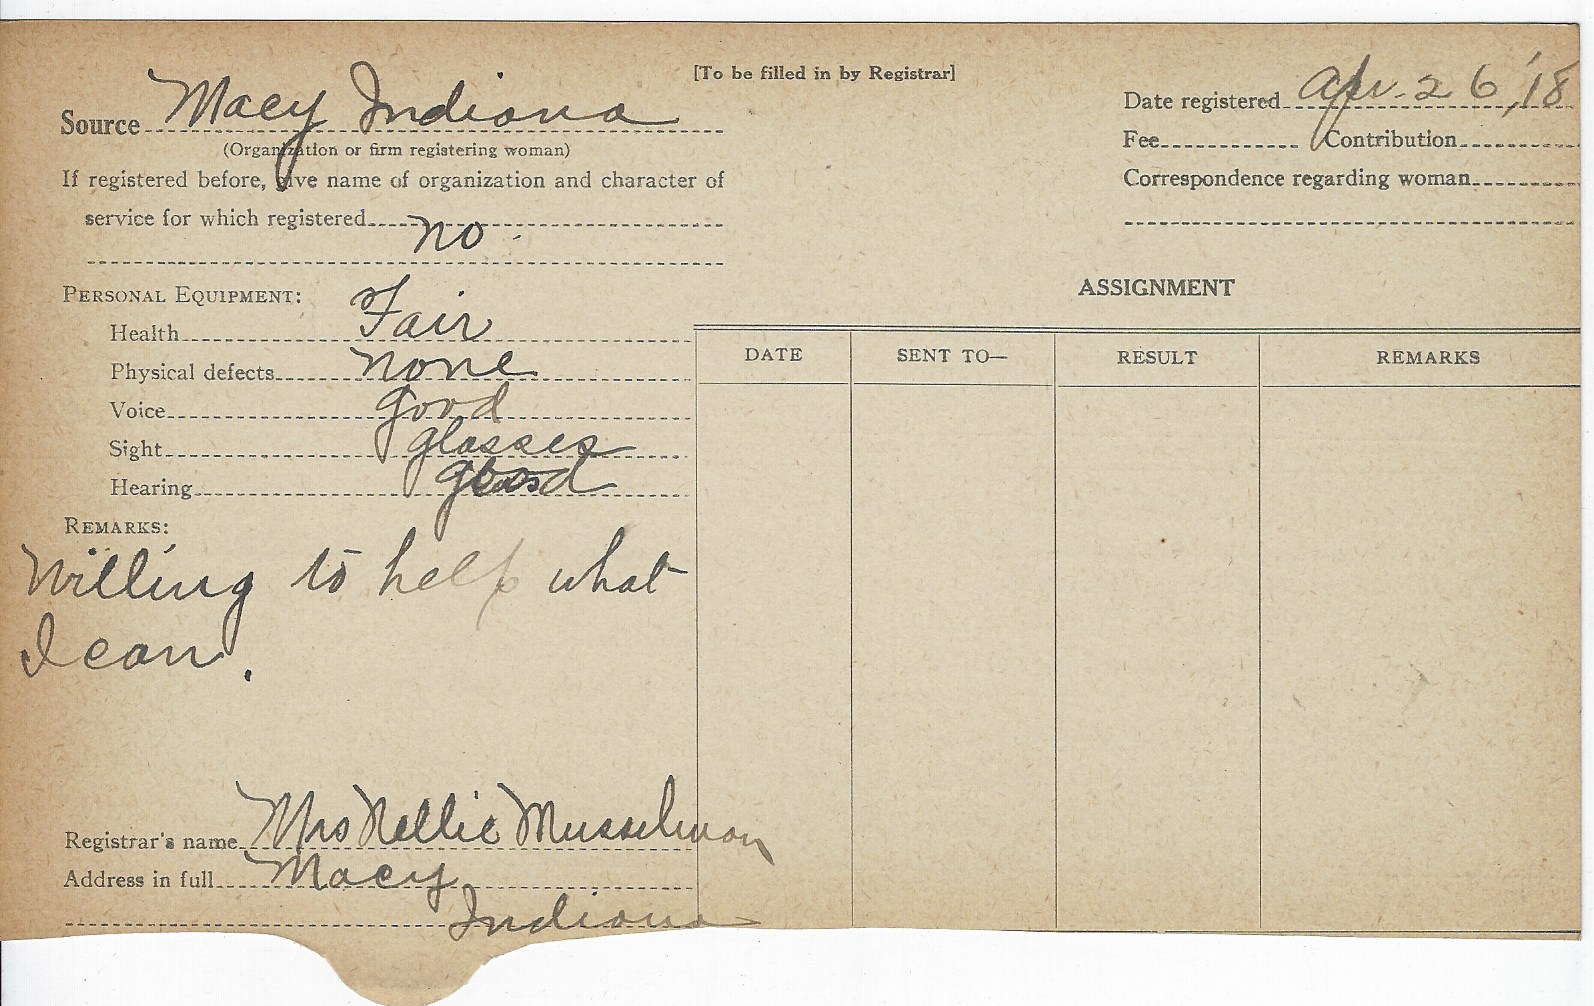 [To be filled in by Registrar]
Source Macy Indiana
(Organization or firm registering woman)
If registered before, give name of organization and character of
service for which registered
no
Date registered Apr. 26, '18
Fee Contribution
Correspondence regarding woman
PERSONAL EQUIPMENT:
Health Fair
Physical defects none
Voice good
Sight glasses
Hearing good
REMARKS:
Willing to help what
I can.
Registrar's name Mrs Nellie Musselman
Address in full Macy
Indiana
ASSIGNMENT
DATE SENT TO— RESULT REMARKS